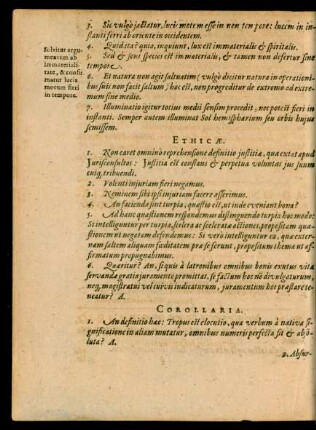 3. Sic vulgo jactatur, lucis motem esse in non tempore: lucem in instanti ferri ab oriente in occidentem.
Subitur argumentum ab immaterialitate, & constirmatur lucis motum fieri in tempore.
4. Quid ita? quia, inquiunt, lux est immaterialis & spiritalis.
5. Sed & soni species est im materialis, & tamen non defertur sine
tempore.
6. Et natura non agit saltuatim (vulgò dicitur natura in operationi-
bus suis non facit saltum; hoc est, non progreditur de extremo ad extre-
mum sine medio.
7. Illuminatio igitur totius medij sensim procedit, nec potest fieri in
instanti. Semper autem illuminat Sol hemisphærium seu orbis hujus
semissem.
ETHICÆ.
1. Non caret omnino reprehensione definitio justitiæ, quæ extat apud
Jurisconsultos: Justitia est constans & perpetua voluntas jus suum
cuiq, tribuendi.
2. Volenti injuriam fieri negamus.
3. Neminem sibi ipsi injuriam facere asserimus.
4. An facienda sint turpia, quæstio est, ut inde eveniant bona?
5. Ad hanc quæstionem respondemus distinguendo turpia hoc modo:
Si intelliguntur per turpia, scelera ac sceleratæ actiones, propositam quæ-
stionem ut negatam defendemus: Si verò intelliguntur ea, quæ exter-
nam saltem aliquam fœditatem præ se ferunt, propositum thema ut af-
firmatum propugnabimus.
6. Quæritur? An, siquis à latronibus omnibus bonis exutus vitæ
servandæ gratia juramento promittat, se factum hoc nõ divulgaturum,
neq, magistratui vel cuivis indicaturum, juramentum hoc præstare te-
neatur? A.
COROLLARIA.
1. An definitio hæc: Tropus est elocutio, qua verbum à nativa si-
gnificatione in aliam mutatur, omnibus numeris perfecta sit & abso-
luta? A.
2. Absur-